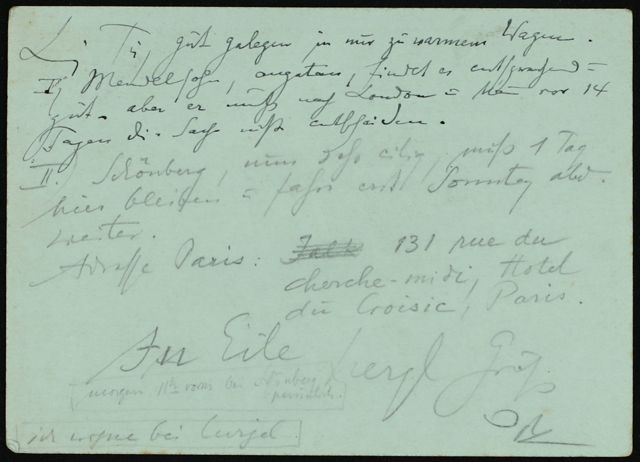 L. Tr, gut gelegen in nur zu warmem Wagen.
I) Mendelsohn, angetan, findet es entsprechend =
gut - aber er muß nach London = kann vor 14
Tagen die Sache nicht entscheiden.
II. Schönberg, nun sehr eilig, muß 1 Tag
hier bleiben = fahre erst Sonntag abd.
weiter.
Adresse Paris: 131 rue du
cherche-midi, Hotel
du Croisic, Paris.
In Eile herzl Grüße
morgen 11h vorm bei Schönberg
persönlich.
ich wohne bei Curjel.